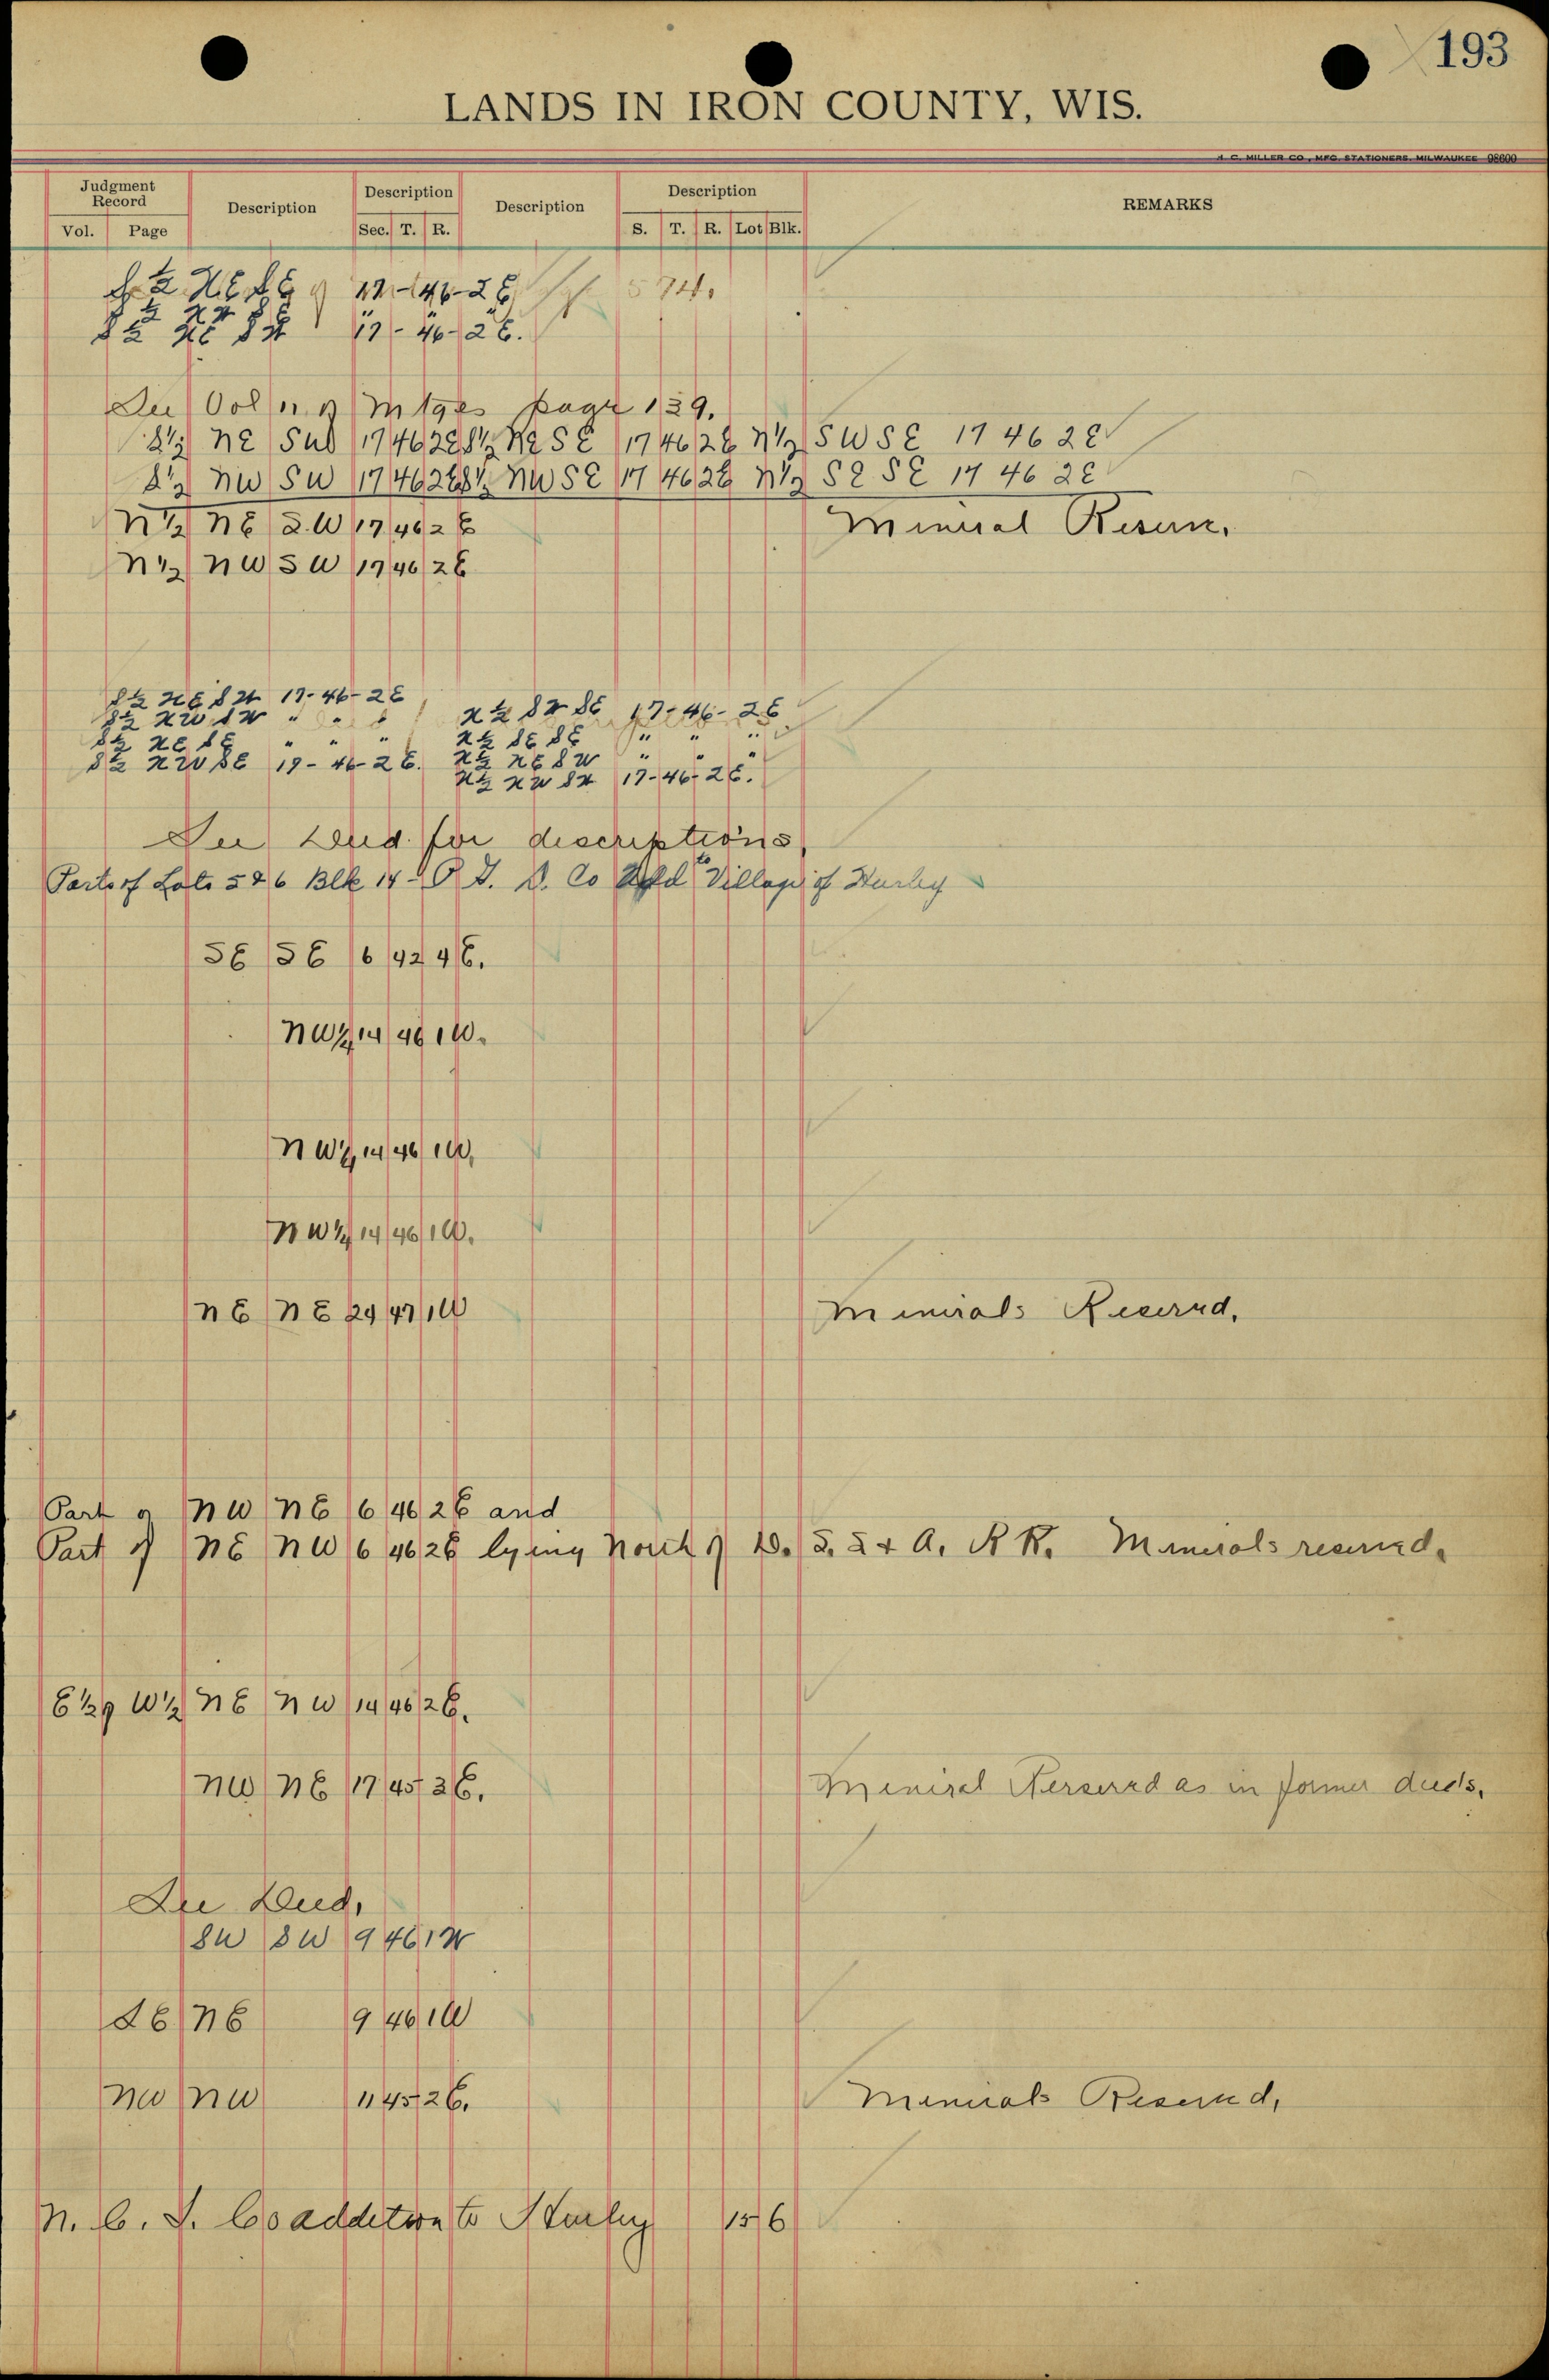 193
LANDS IN IRON COUNTY, WIS.
H. C. MILLER CO., MFG. STATIONERS, MILWAUKEE 98600
Judgment Record Description Description Description Description REMARKS
Vol. Page Sec. T. R. S. T. R. Lot Blk.
S ½ NE SE 17-46-2E
S ½ NW SE
S ½ NE SW 17-46-2E.
See Vol n of Mtges page 139.
S½ NE SW 17 46 2E S½ NE SE 17 46 2E N½ SW SE 17 46 2E
S½ NW SW 17 46 2E S½ NW SE 17 46 2E N½ SE SE 17 46 2E
N½ NE S.W 17 46 2E Mineral Reserve.
N½ NW SW 17 46 2E
S½ NE SW 17-46-2E N½ SW SE 17-46-2E
S½ NW SW " " " N½ SE SE " " "
S½ NE SE " " " N½ NE SW " " "
S½ NW SE 17-46-2E. N½ NW SW 17-46-2E.
See Deed for descriptions
Parts of Lots 5 & 6 Blk 14 - D. Co Add to Village of Hurley
SE SE 6 42 4E.
NW¼ 14 46 1W.
NW¼ 14 46 1W.
NW¼ 14 46 1W.
NE NE 24 47 1W Minerals Reserved.
Part of NW NE 6 46 2E and
Part of NE NW 6 46 2E lying North of D. S. S & A. R R. Minerals reserved.
E½ of W½ NE NW 14 46 2E.
NW NE 17 45 2E. Mineral Reserved as in former deeds.
See Deed.
SW SW 9 46 1W
SE NE 9 46 1W
NW NW 11 45 2E. Minerals Reserved.
N. C. I. Co addition to Hurley 15 6